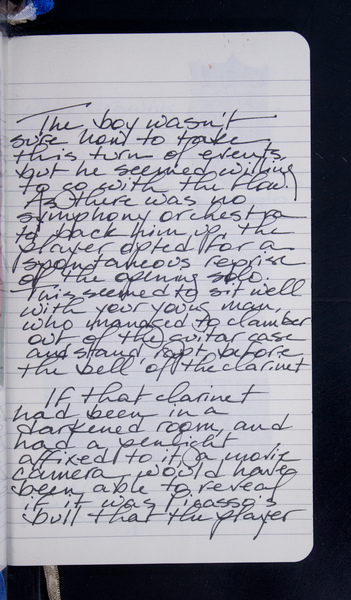 The boy wasn't
sure how to take
this turn of events,
but he seemed willing
to go with the flow.
As there was no
symphony orchestra
to back him up, the
player opted for a
spontaneous reprise
of the opening solo.
This seemed to sit well
with your young man,
who managed to clamber
out of the guitar case
and stand rapt before
the bell of the clarinet
If that clarinet
had been in a
darkened room, and
had a penlight
affixed to it, a movie
camera would have
been able to reveal
if it was Picasso's
bull that the player